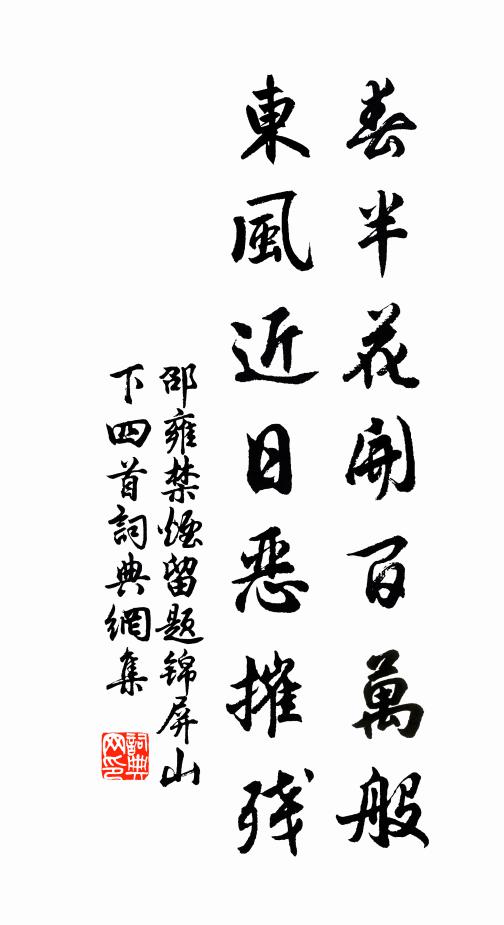 春半花開百萬般
東風近日惡摧残
邵雍禁煙留题锦屏山
下四首詞典網集
詞典网印